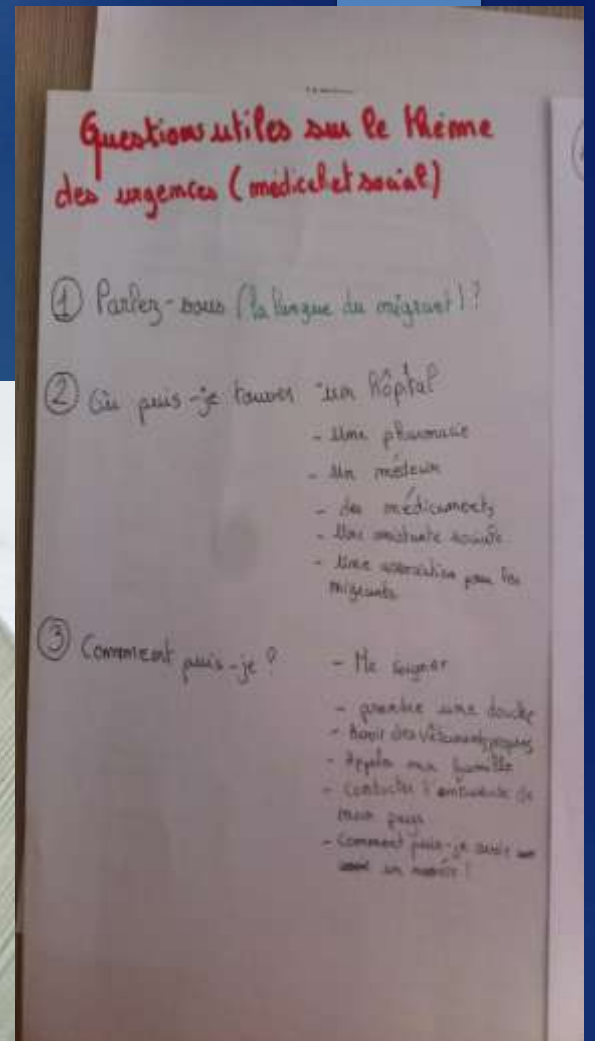 Questions utiles sur le thème
des urgences (médical et social)
① Parlez-vous (la langue du migrant) ?
② Où puis-je trouver - un hôpital
- Une pharmacie
- Un médecin
- des médicaments
- Une assistante sociale
- Une association pour les
migrants
③ Comment puis-je ? - Me soigner
- prendre une douche
- Avoir des vêtements propres
- Appeler ma famille
- Contacter l'ambassade de
mon pays
- Comment puis-je avoir
un